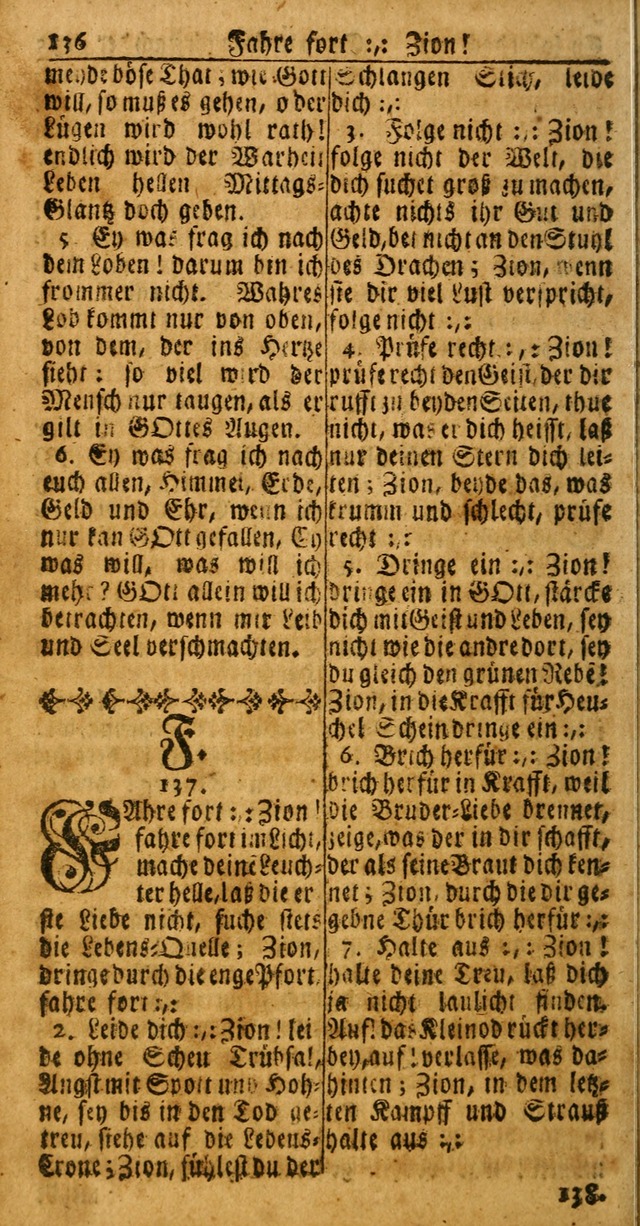 136 Fahre fort :,: Zion!
mende böse That; wie Gott
will, so muß es gehen, o der
Lügen wird wohl rath!
endlich wird der Warheit
Leben hellen Mittags-
Glantz doch geben.
5 Ey was frag ich nach
dem Loben! darum bin ich
frommer nicht. Wahres
Lob kommt nur von oben,
von dem, der ins Hertze
sieht: so viel wird der
Mensch nur taugen, als er
gilt in GOttes Augen.
6. Ey was frag ich nach
euch allen, Himmel, Erde,
Geld und Ehr, wenn ich
nur kan GOtt gefallen, Ey
was will, was will ich
mehr? GOtt allein will ich
betrachten, wenn mir Leib
und Seel verschmachten.
F.
137.
FAhre fort :,: Zion!
fahre fort im Licht,
mache deine Leuch-
ter helle, laß die er
ste Liebe nicht, suche stets
die Lebens-Quelle; Zion,
dringe durch die enge Pfort
fahre fort :,:
2. Leide dich :,: Zion! lei
de ohne Scheu Trübsal,
Angst mit Spott und Hoh-
ne, sey bis in den Tod ge-
treu, siehe auf die Lebens-
Crone; Zion, fühlest du der
Schlangen Stich, leide
dich :,:
3. Folge nicht :,: Zion!
folge nicht der Welt, die
dich suchet groß zu machen,
achte nichts ihr Gut und
Geld, bet nicht an den Stuhl
des Drachen; Zion, wenn
sie dir viel Lust verspricht,
folge nicht :,:
4. Prüfe recht :,: Zion!
prüfe recht den Geist, der dir
rufft zu beyden Seiten, thue
nicht, was er dich heisst, laß
nur deinen Stern dich lei-
ten; Zion, beyde das, was
krumm und schlecht, prüfe
recht :,:
5. Dringe ein :,: Zion!
dringe ein in GOtt, stärcke
dich mit Geist und Leben, sey
nicht wie die andre dort, sey
du gleich den grünen Rebē!
Zion, in die Krafft für Heu-
chel Schein dringe ein :,:
6. Brich herfür :,: Zion!
brich herfür in Krafft, weil
die Bruder-Liebe brennet,
zeige, was der in dir schafft,
der als seine Braut dich ken-
net; Zion, durch die dir ge-
gebne Thür brich herfür :,:
7. Halte aus :,: Zion!
halte deine Treu, laß dich
ja nicht laulicht finden.
Auf! das Kleinod rückt her-
bey, auf! verlasse, was da-
hinten; Zion, in dem letz-
ten Kampff und Strauß
halte aus :,:
138.